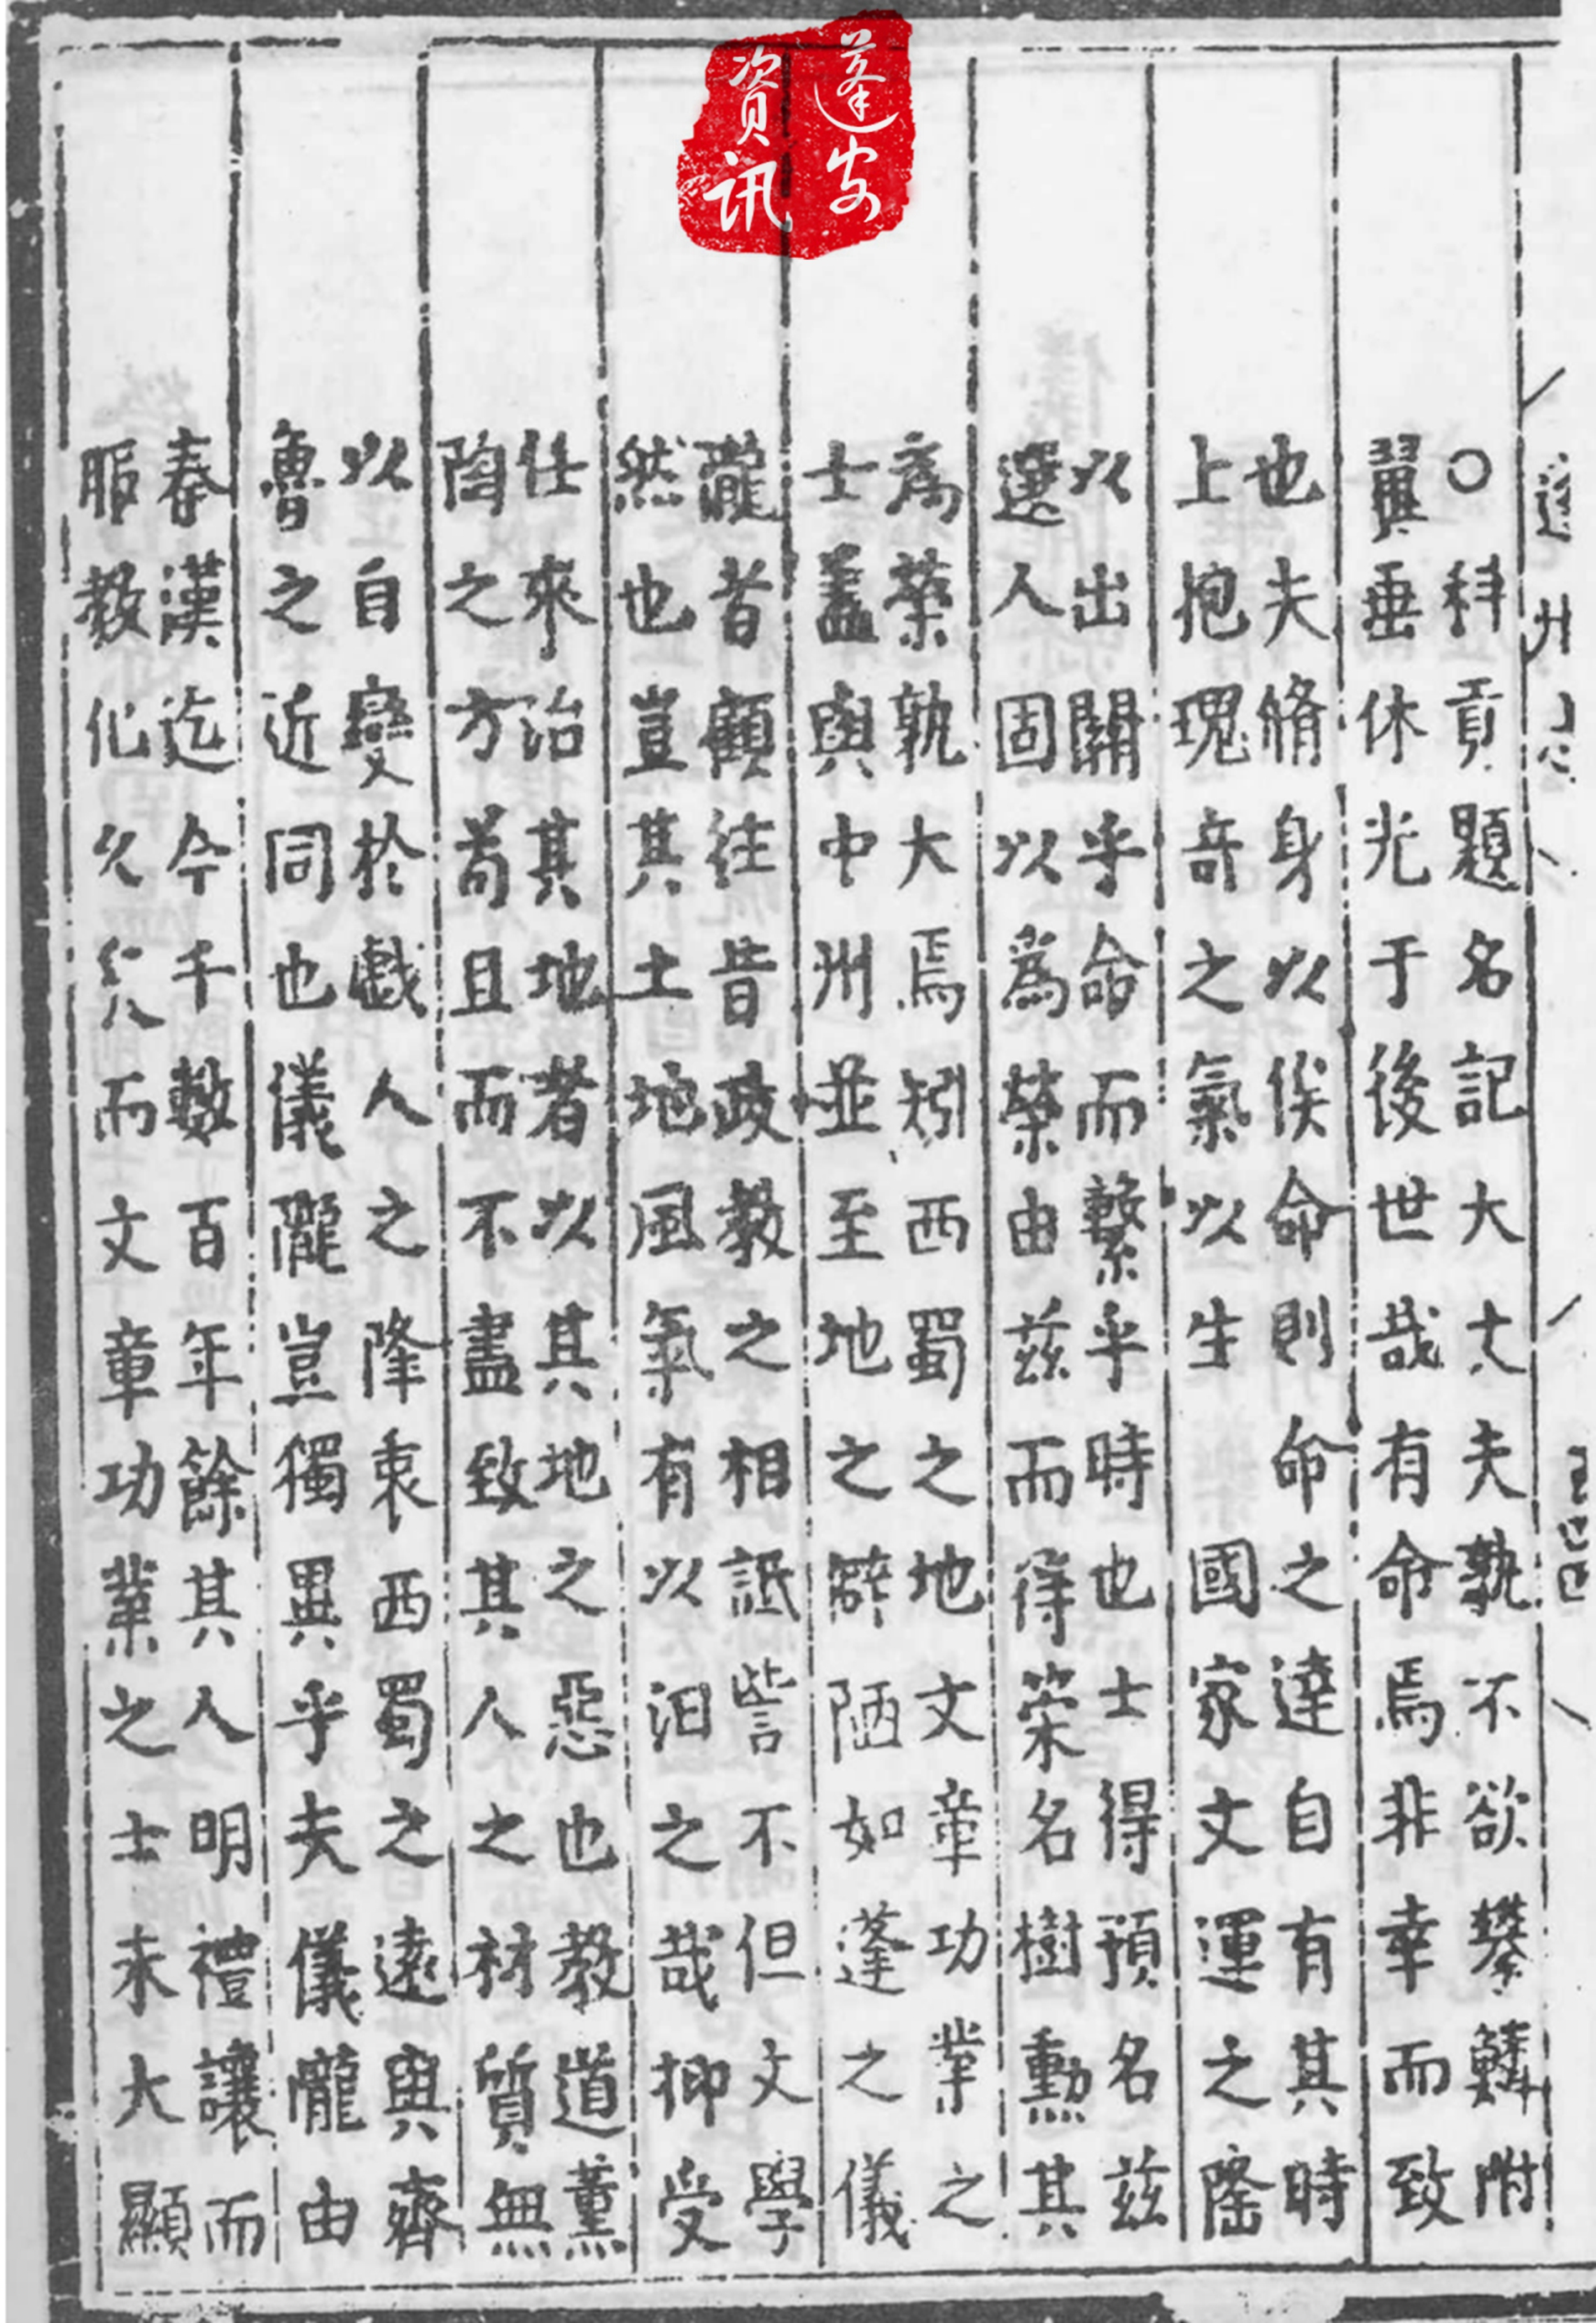 蓬安
資訊
○科貢題名記大丈夫孰不欲攀鱗附
翼垂休光于後世哉有命焉非幸而致
也夫脩身以俟命則命之達自有其時
上抱瑰奇之氣以生 國家文運之隆
以出關乎命而繫乎時也士得預名兹
選人固以為榮由兹而得荣名樹勳其
為榮孰大焉矧西蜀之地文章功業之
士蓋與中州並至地之僻陋如蓬之儀
隴者顧往昔政教之相詆訾不但文學
然也豈其土地風氣有以汨之哉抑受
任來治其地者以其地之惡也教道薰
陶之方苟且而不盡致其人之材質無
以自變於戯人之隆衷西蜀之遠與齊
魯之近同也儀隴豈獨異乎夫儀隴由
秦漢迄今千數百年餘其人明禮讓而
服教化久矣而文章功業之士未大顯